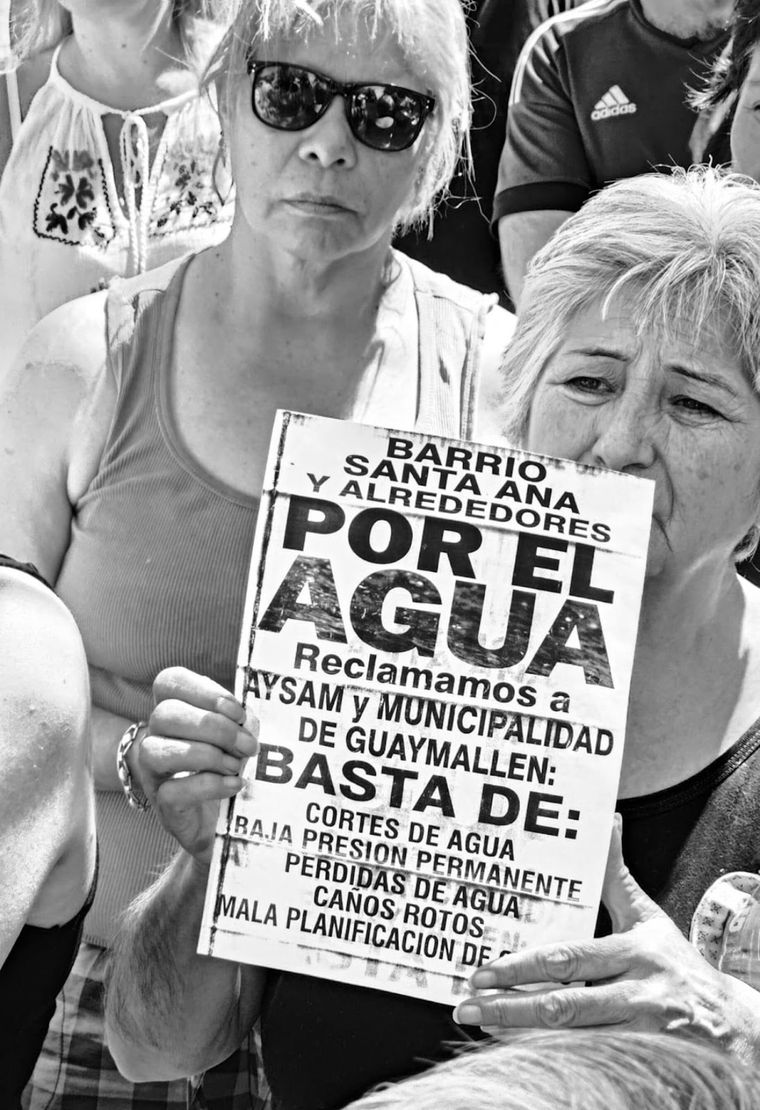 adidas
BARRIO
SANTA ANA
Y ALREDEDORES
POR EL
AGUA
Reclamamos a
AYSAM y MUNICIPALIDAD
DE GUAYMALLEN:
BASTA DE:
CORTES DE AGUA
BAJA PRESION PERMANENTE
PERDIDAS DE AGUA
CAÑOS ROTOS
MALA PLANIFICACION DE